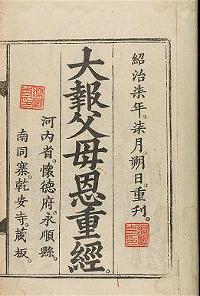 紹治柒年。柒月朔日。重刊。
大報父母恩重經。
河內省。懷德府。永順縣。
南同寨。乾安寺。藏板。